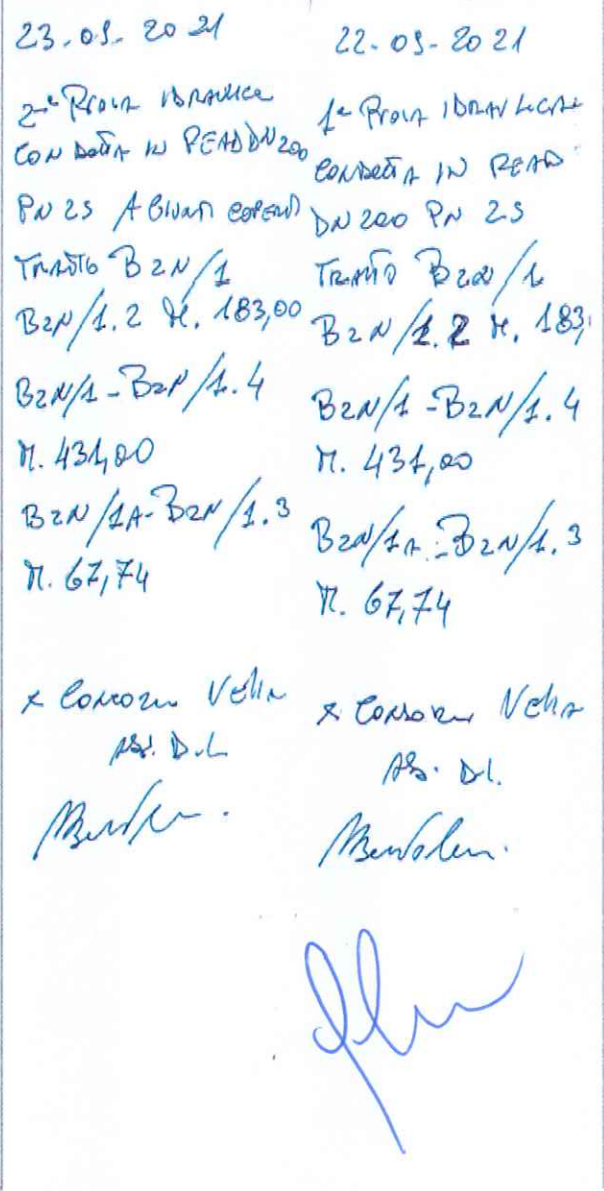 23-09-2021
2ª PROVA IDRAULICA
CONDOTTA IN PEAD DN200
PN 25 A GIUNTI COPERTI
TRATTO B2N/1
B2N/1.2 M. 183,00
B2N/1-B2N/1.4
M. 431,00
B2N/1A-B2N/1.3
M. 67,74
x CONSORZIO VELIA
ASS. D.L.
22-09-2021
1ª PROVA IDRAULICA
CONDOTTA IN PEAD
DN 200 PN 25
TRATTO B2N/1
B2N/1.2 M. 183,
B2N/1-B2N/1.4
M. 431,00
B2N/1A-B2N/1.3
M. 67,74
x CONSORZIO VELIA
ASS. D.L.